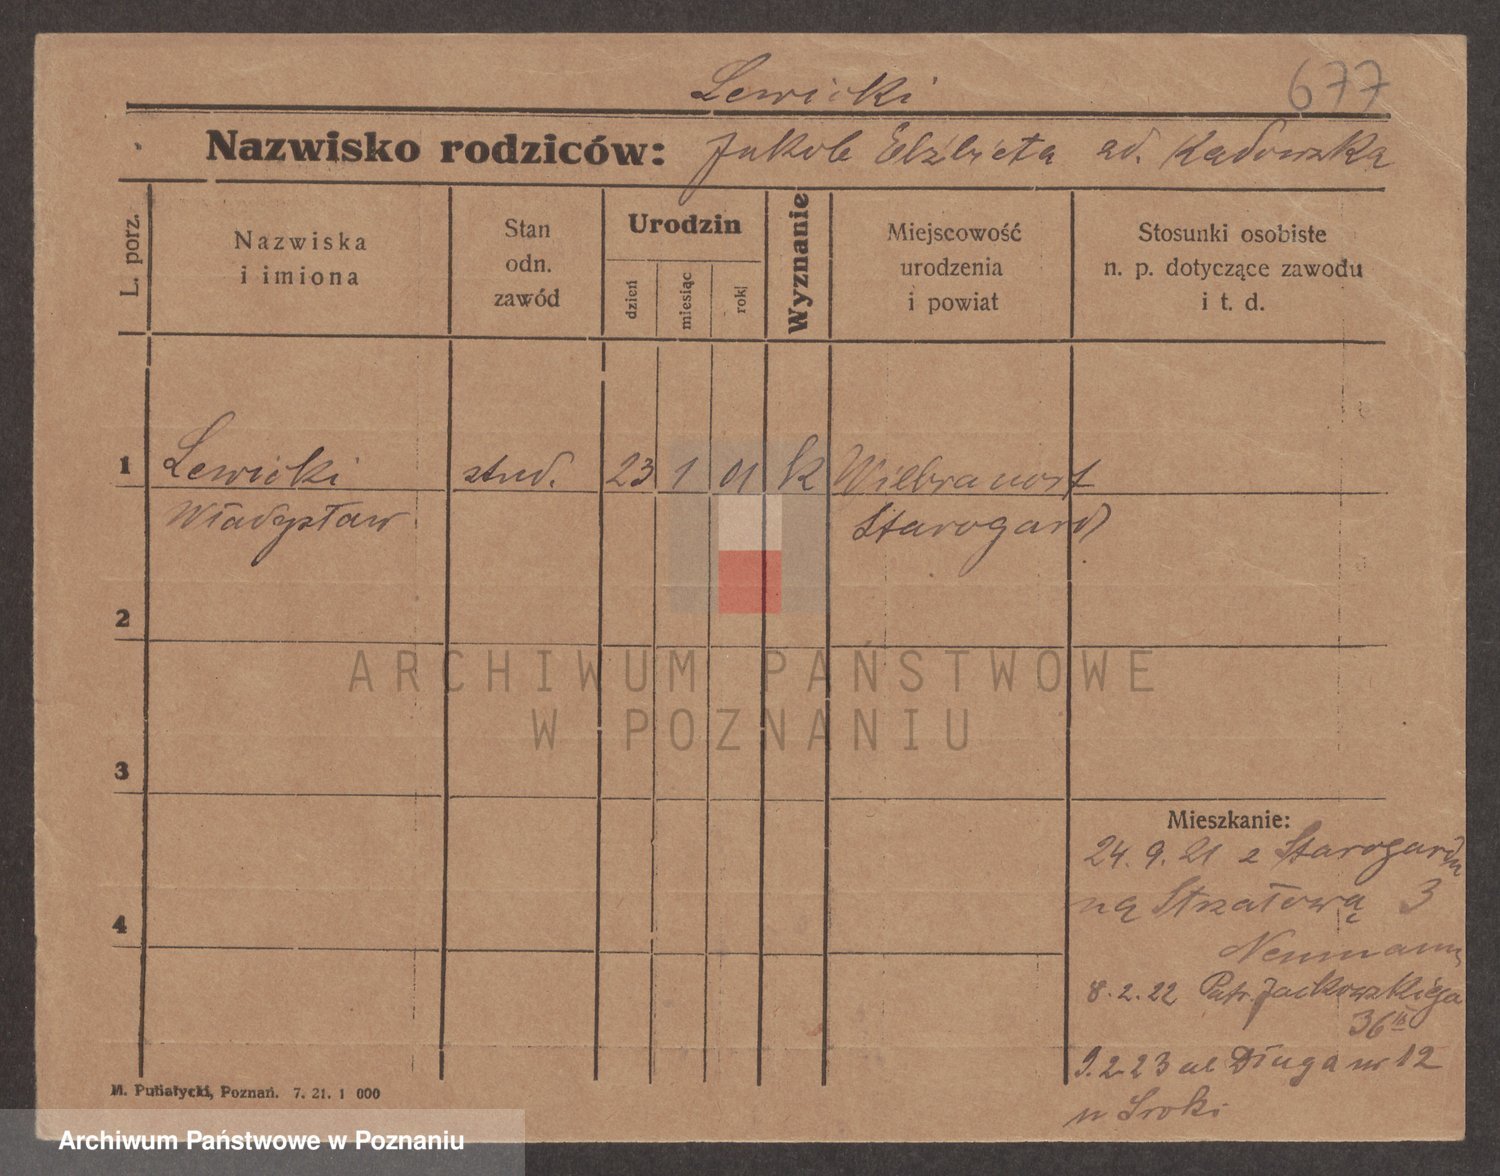 Lewicki
677
Nazwisko rodziców: Jakób Elżbieta ad. Kadowska
L. porz.
Nazwiska
i imiona
Stan
odn.
zawód
Urodzin
dzień
miesiąc
rok
Wyznanie
Miejscowość
urodzenia
i powiat
Stosunki osobiste
n. p. dotyczące zawodu
i t. d.
1 Lewicki stud. 23 1 01 k
Władysław Starogard
2
ARCHIWUM PAŃSTWOWE
W POZNANIU
3
Mieszkanie:
24. 9. 21 z Starogardu
na Strzałową 3
4
Neumann
8. 2. 22 Patr. Jackowskiego
36
9. 2. 23 ul Długa nr 12
u Sroki
M. Putiatycki, Poznań. 7. 21. 1 000
Archiwum Państwowe w Poznaniu